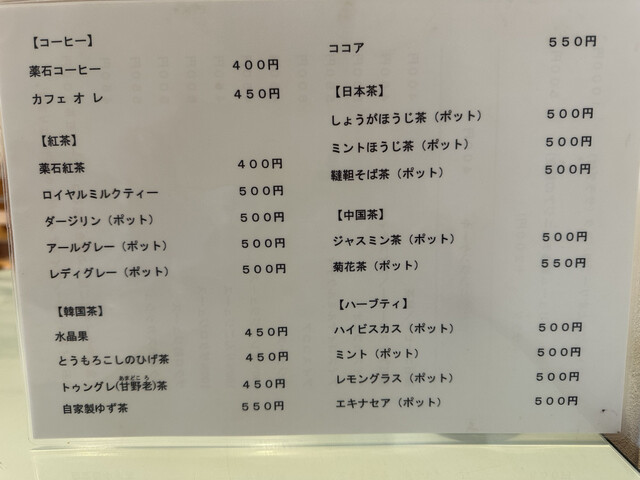 【コーヒー】
薬石コーヒー 400円
カフェ オ レ 450円
【紅茶】
薬石紅茶 400円
ロイヤルミルクティー 500円
ダージリン（ポット） 500円
アールグレー（ポット） 500円
レディグレー（ポット） 500円
【韓国茶】
水晶果 450円
とうもろこしのひげ茶 450円
トゥングレ(甘野老)茶 450円
自家製ゆず茶 550円
ココア 550円
【日本茶】
しょうがほうじ茶（ポット） 500円
ミントほうじ茶（ポット） 500円
韃靼そば茶（ポット） 500円
【中国茶】
ジャスミン茶（ポット） 500円
菊花茶（ポット） 550円
【ハーブティ】
ハイビスカス（ポット） 500円
ミント（ポット） 500円
レモングラス（ポット） 500円
エキナセア（ポット） 500円